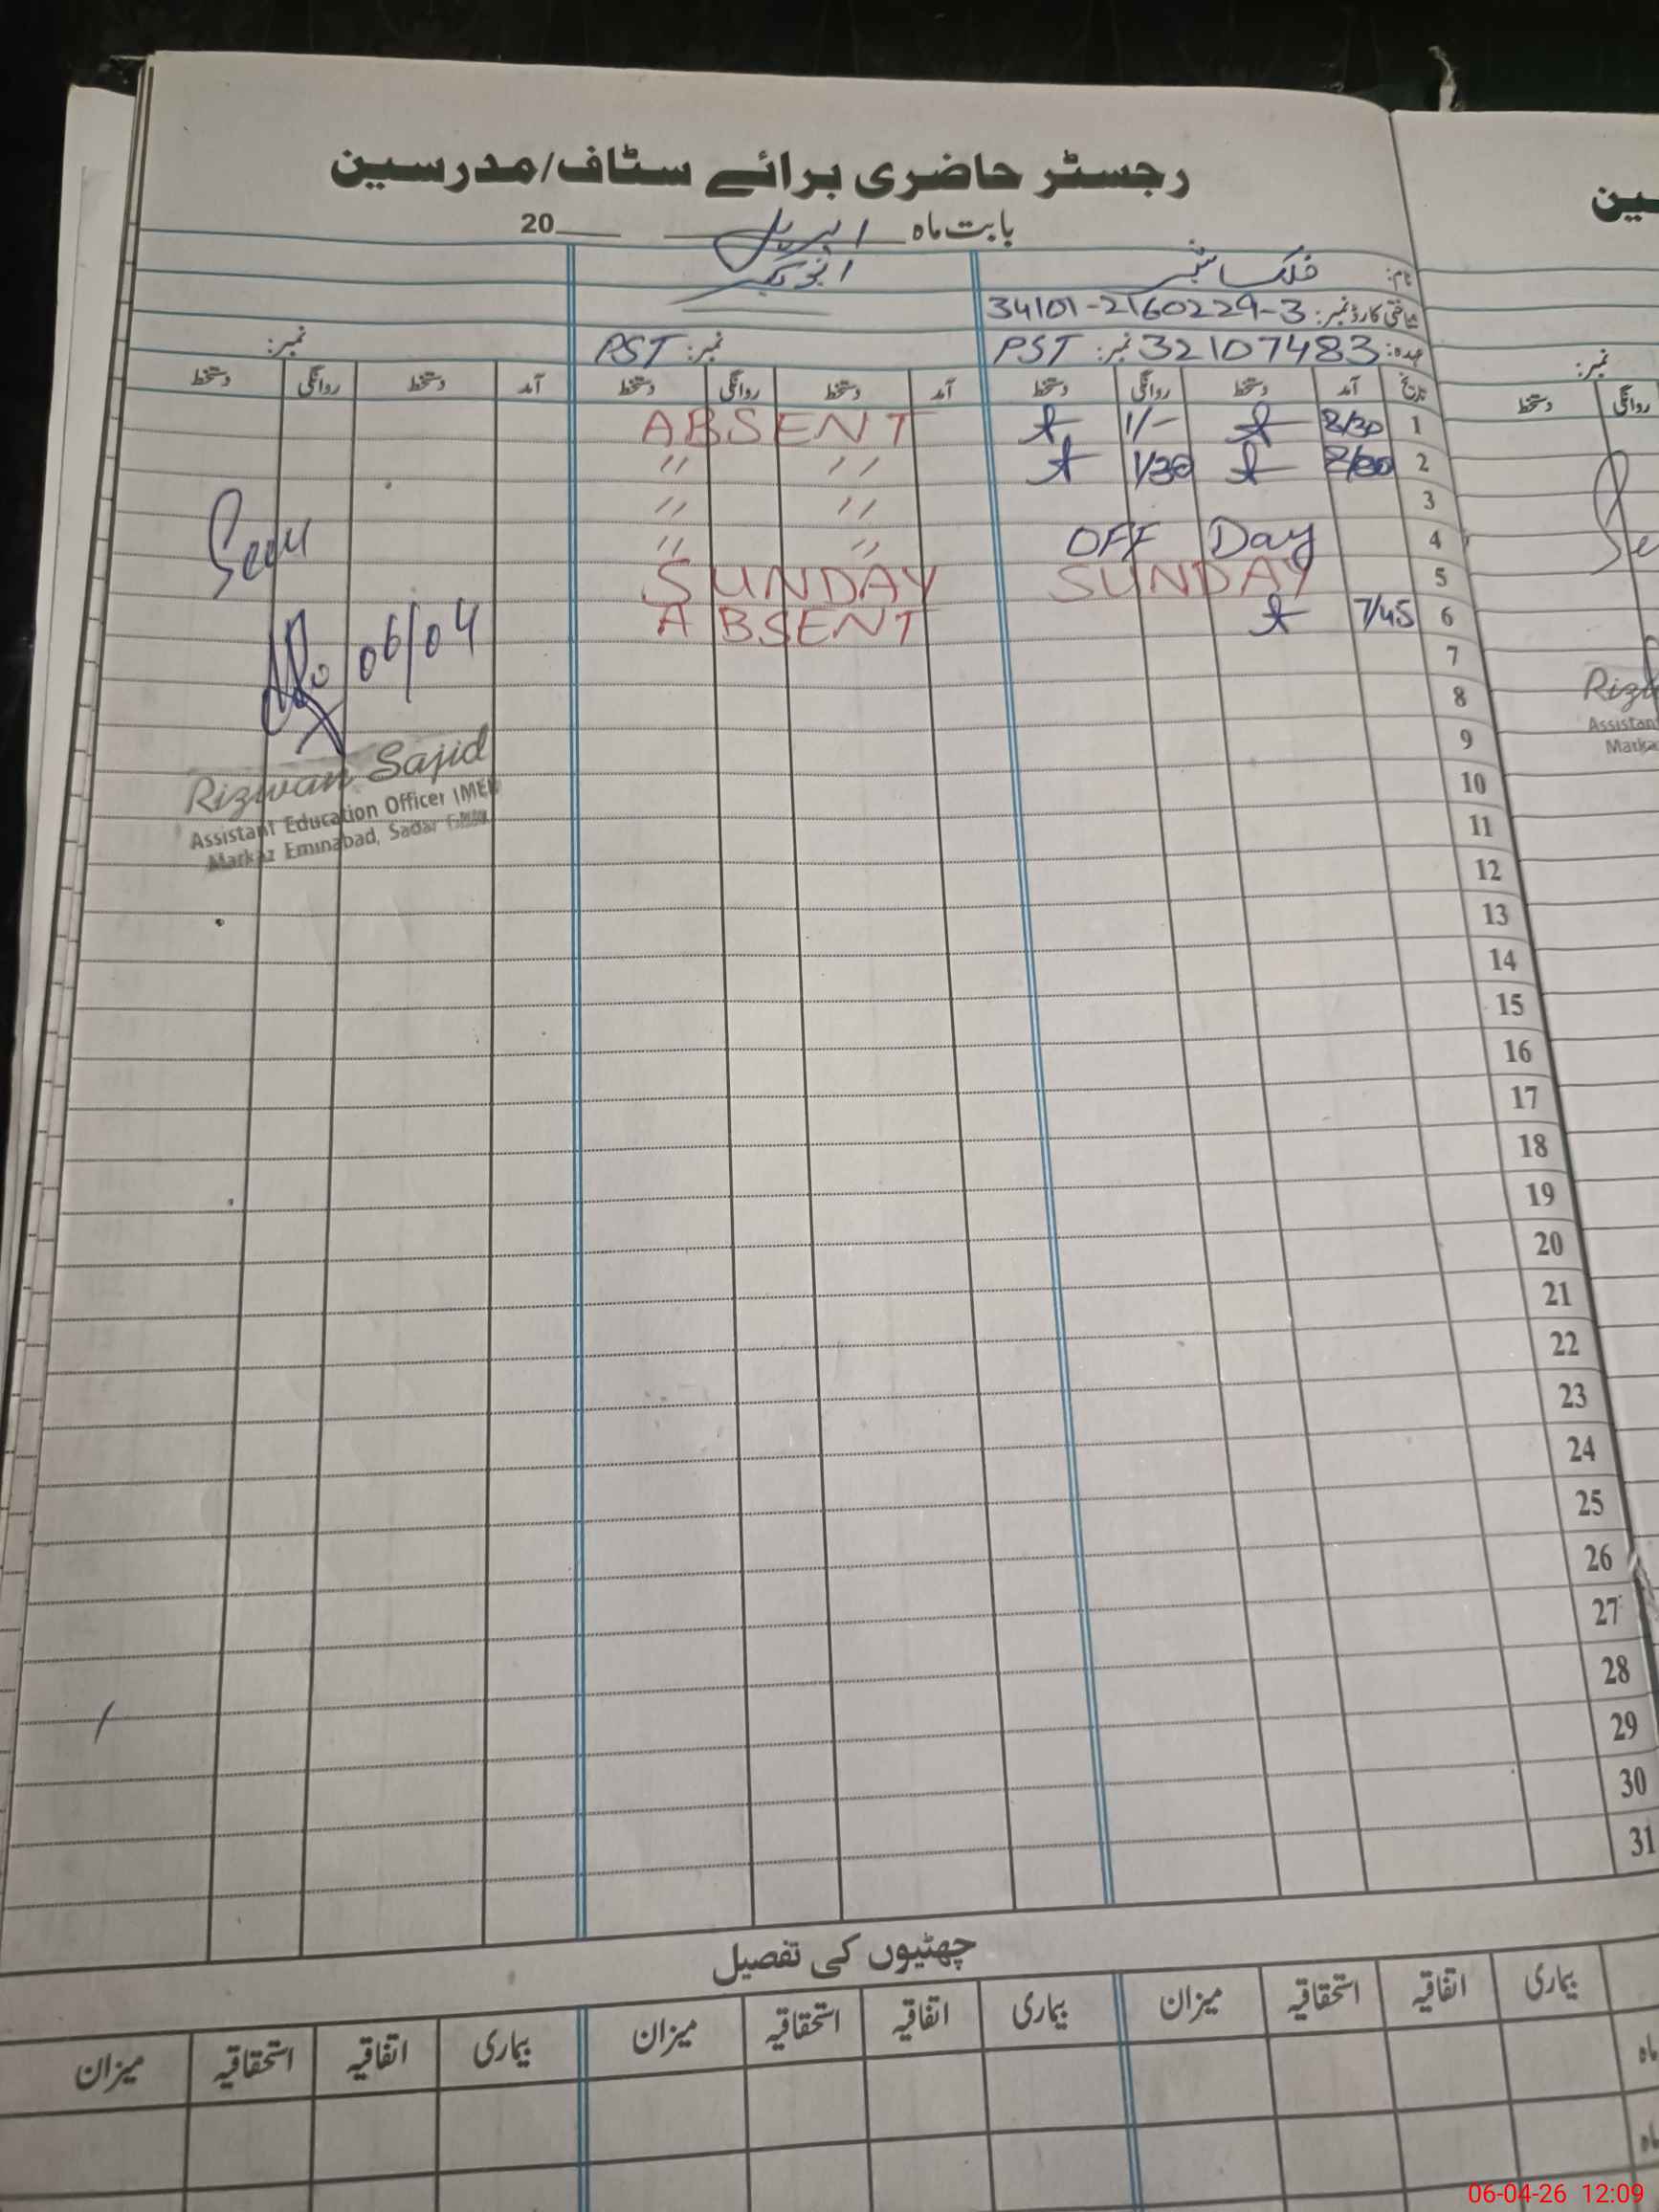 رجسٹر حاضری برائے سٹاف/مدرسین
بابت ماہ اپریل 20
نام: فلک
شناختی کارڈ نمبر: 34101-2160229-3
عہدہ: 32107483 نمبر: PST
نمبر: PST
نمبر:
تاریخ آمد دستخط روانگی دستخط آمد دستخط روانگی دستخط آمد دستخط روانگی دستخط
1 8/30 1/- ABSENT
2 1/30 〃 〃
3 〃 〃
4 OFF Day 〃 〃
5 SUNDAY SUNDAY
6 7/45 ABSENT
7
8
9
10
11
12
13
14
15
16
17
18
19
20
21
22
23
24
25
26
27
28
29
30
31
Seen
06/04
Rizwan Sajid
Assistant Education Officer (MEE
Markaz Eminabad, Sadar
چھٹیوں کی تفصیل
بیماری اتفاقیہ استحقاقیہ میزان بیماری اتفاقیہ استحقاقیہ میزان بیماری اتفاقیہ استحقاقیہ میزان
ماہ
ماہ
نمبر:
روانگی دستخط
Se
Rizw
Assistan
Marka
06-04-26 12:09